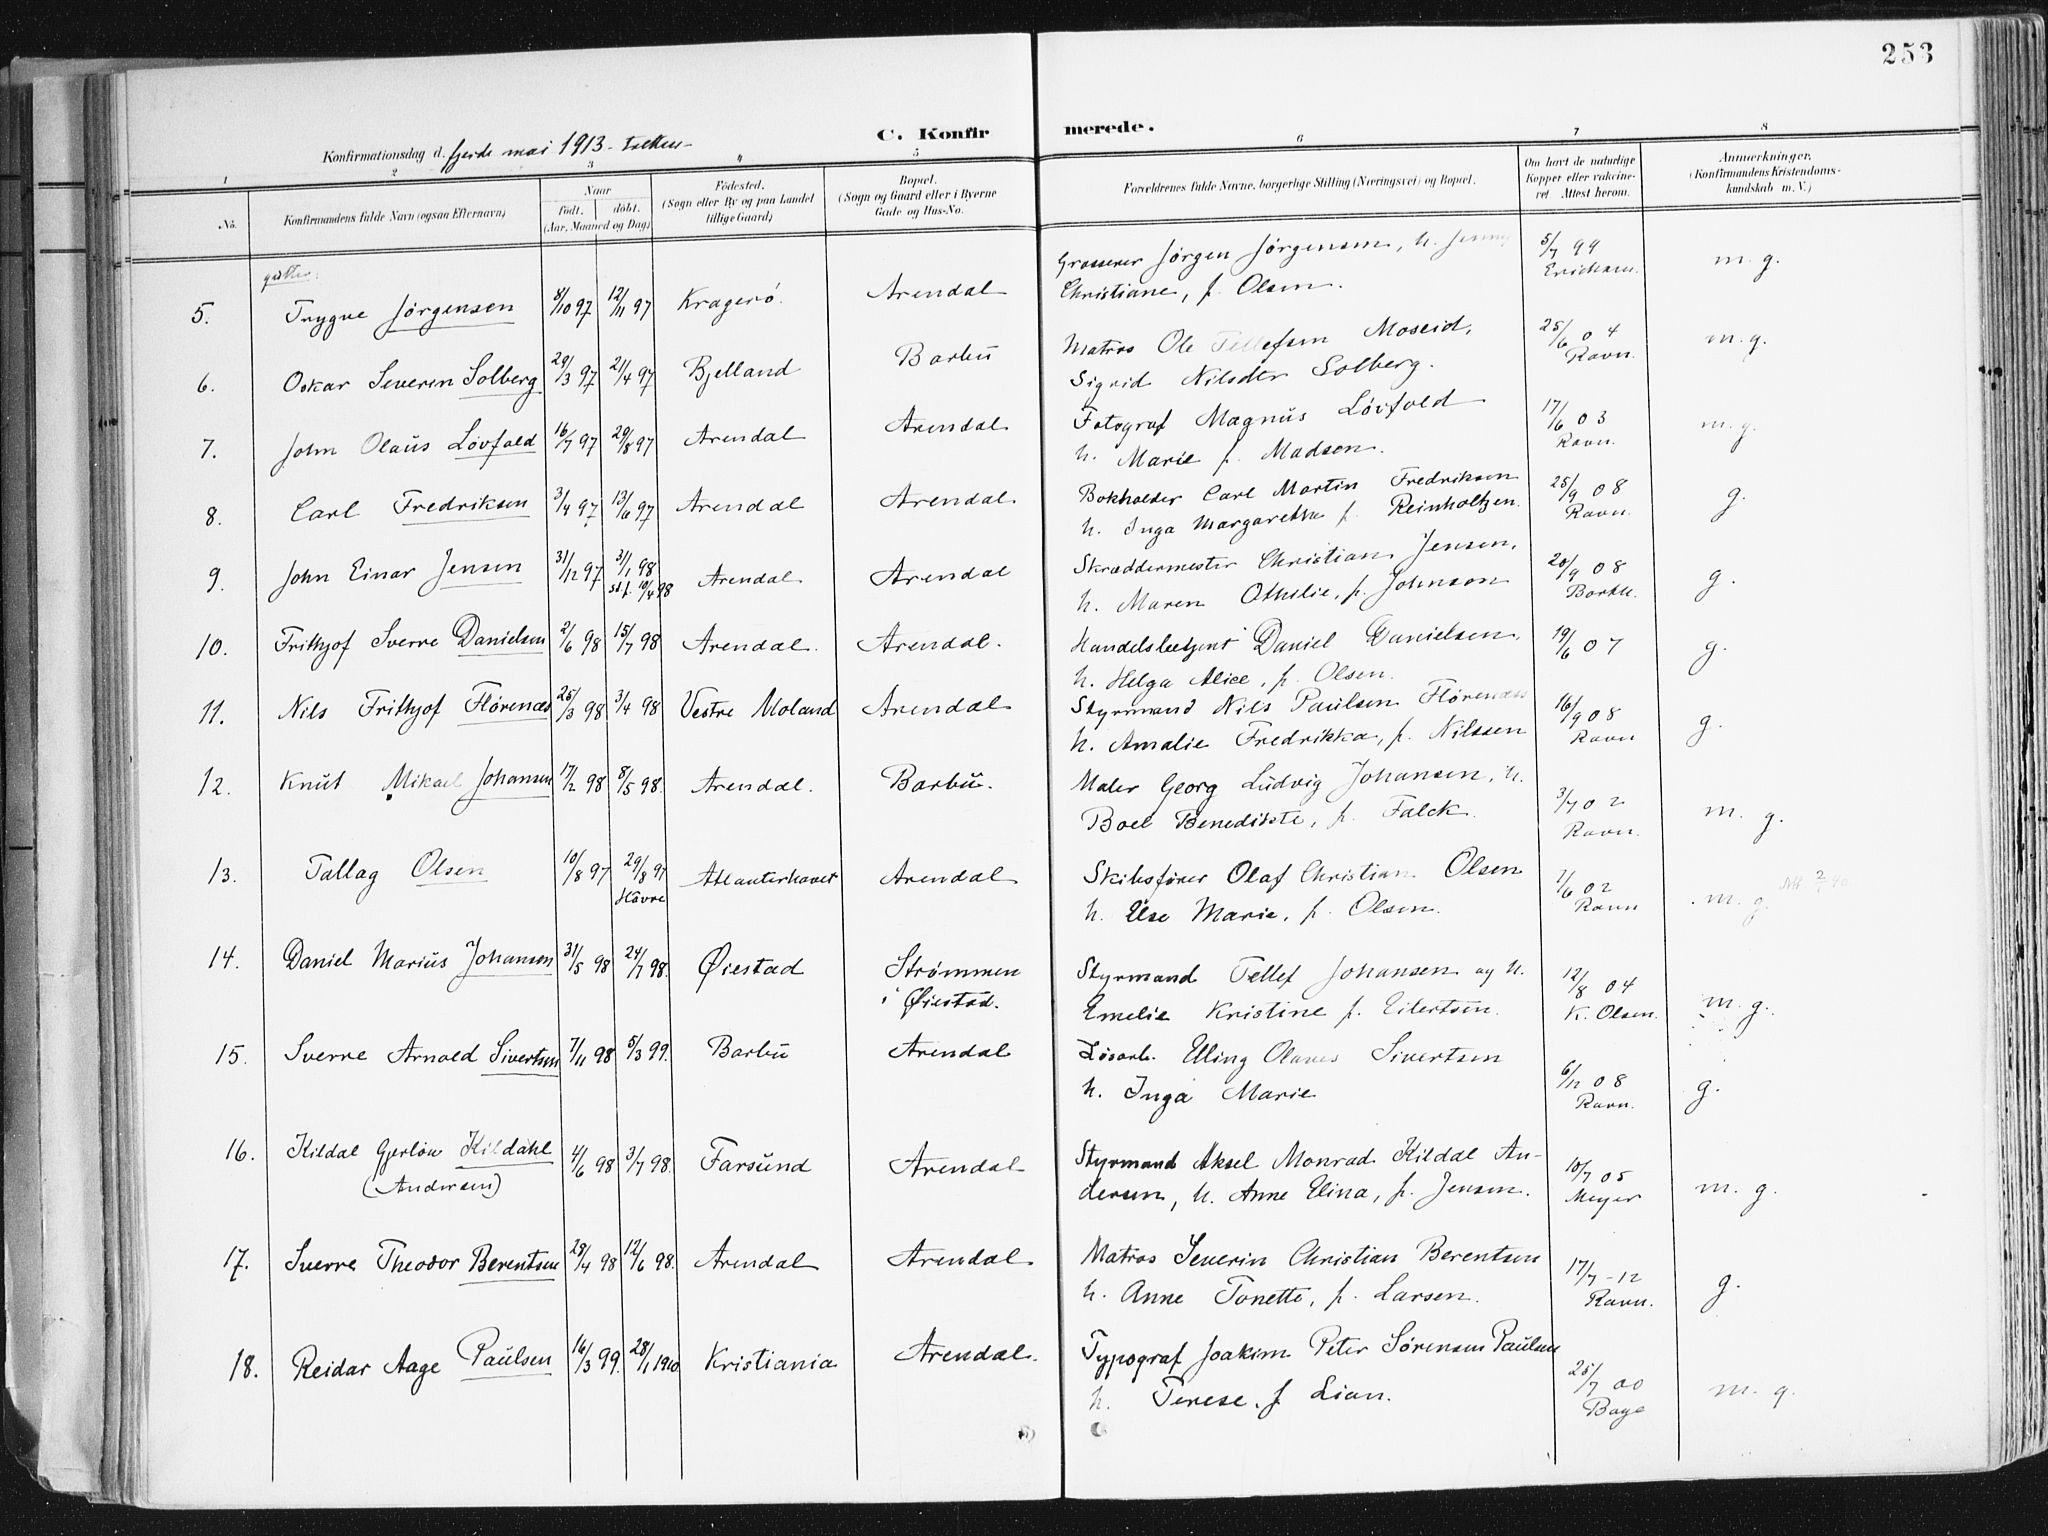 253
C. Konfirmerede.
Konfirmationsdag d. fjerde mai 1913
1 2 3 4 5 6 7 8
No. Konfirmandens fulde Navn (ogsaa Efternavn) Naar født. døbt. (Aar, Maaned og Dag) Fødested. (Sogn eller By og paa Landet tillige Gaard) Bopæl. (Sogn og Gaard eller i Byerne Gade og Hus-No. Forældrenes fulde Navne, borgerlige Stilling (Næringsvei) og Bopæl. Om havt de naturlige Kopper eller vakcineret Attest herom. Anmærkninger. (Konfirmandens Kristendomskundskab m. V.)
gutter:
5. Trygve Jörgensen 8/10 97 12/11 97 Kragerö. Arendal Grosserer Jörgen Jörgensen, h. Jenny Christiane, f. Olsen. 5/7 99 Erichsen. m. g.
6. Oskar Severin Solberg 29/3 97 21/4 97 Bjelland Barbu Matros Ole Tellefsen Moseid, Sigrid Nilsdtr Solberg. 25/6 04 Ravn. m. g.
7. John Olaus Lövfold 16/7 97 29/8 97 Arendal Arendal Fotograf Magnus Lövfold h. Marie f. Madsen. 17/6 03 Ravn. m. g.
8. Carl Fredriksen 3/4 97 13/6 97 Arendal Arendal. Bokholder Carl Martin Fredriksen h. Inga Margarethe f. Reinholtzen. 25/9 08 Ravn. g.
9. John Einar Jensen 31/12 97 3/1 98 st. f. 10/4 98 Arendal Arendal Skræddermester Christian Jensen, h. Maren Othilie, f. Johnson 20/9 08 g.
10. Frithjof Sverre Danielsen 2/6 98 15/7 98 Arendal. Arendal. Handelsbetjent Daniel Danielsen, h. Helga Alice, f. Olsen. 19/6 07 g.
11. Nils Frithjof Flørenæs 25/3 98 3/4 98 Vestre Moland Arendal Styrmand Nils Paulsen Flørenæs h. Amalie Fredrikka, f. Nilssen 16/9 08 Ravn g.
12. Knut Mikael Johansen 17/2 98 8/5 98. Arendal. Barbu. Maler Georg Ludvig Johansen, h. Boel Benedikte, f. Falck. 3/7 02 Ravn. m. g.
13. Tallag Olsen 10/8 97 29/8 97 Havre Atlanterhavet Arendal Skibsfører Olaf Christian Olsen h. Else Marie, f. Olsen. 1/6 02 Ravn m. g.
14. Daniel Marius Johansen 31/5 98 24/7 98. Øiestad Strømmen i Øiestad. Styrmand Tellef Johansen og h. Emelie Kristine f. Eilertsen. 12/8 04 K. Olsen. m. g.
15. Sverre Arnold Sivertsen 7/11 98 5/3 99. Barbu Arendal Løsarb. Elling Olaves Sivertsen h. Inga Marie 6/12 08 Ravn. g.
16. Kildal Gjerløw Kildahl (Andersen) 4/6 98 3/7 98. Farsund Arendal Styrmand Aksel Monrad Kildal Andersen, h. Anne Elina, f. Jensen. 10/7 05 Meyer m. g.
17. Sverre Theodor Berentsen 28/4 98 12/6 98. Arendal Arendal Matros Severin Christian Berentsen h. Anne Tonette, f. Larsen. 17/7 -12 Ravn. g.
18. Reidar Aage Paulsen 16/3 99. 28/1 1900 Kristiania Arendal. Typograf Joakim Peter Sörensen Paulsen h. Terese, f. Lian. 25/7 00 m. g.